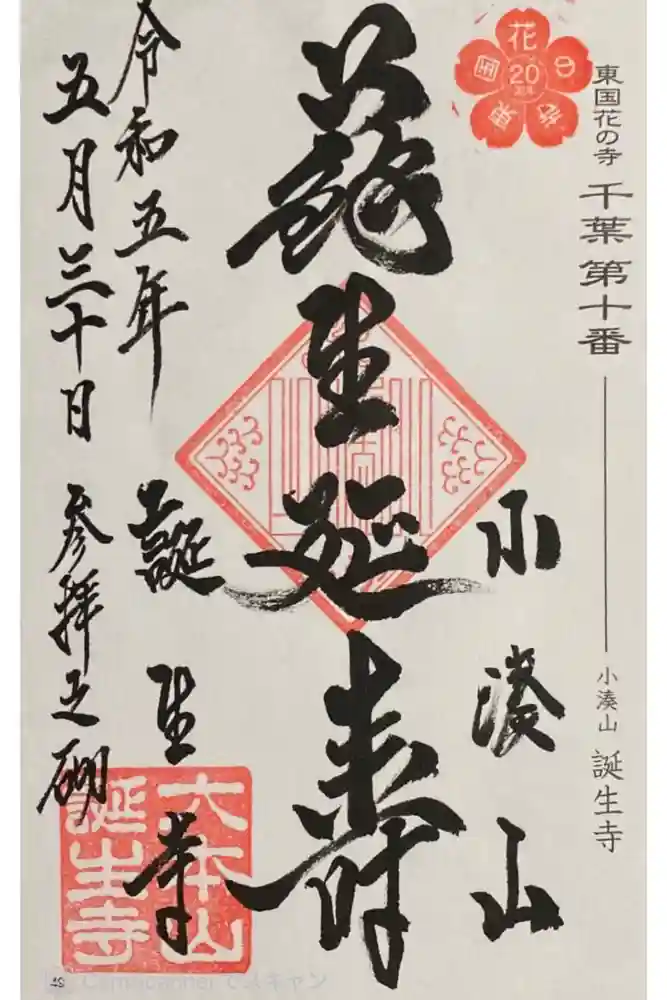 東国花の寺 千葉第十番
小湊山 誕生寺
花
20
小湊山
蘇生延壽
誕生寺
令和五年
五月三十日 参拝之砌
大本山
誕生寺
CamScanner でスキャン